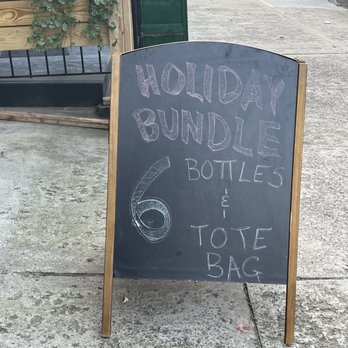 HOLIDAY
BUNDLE
6 BOTTLES
&
TOTE
BAG